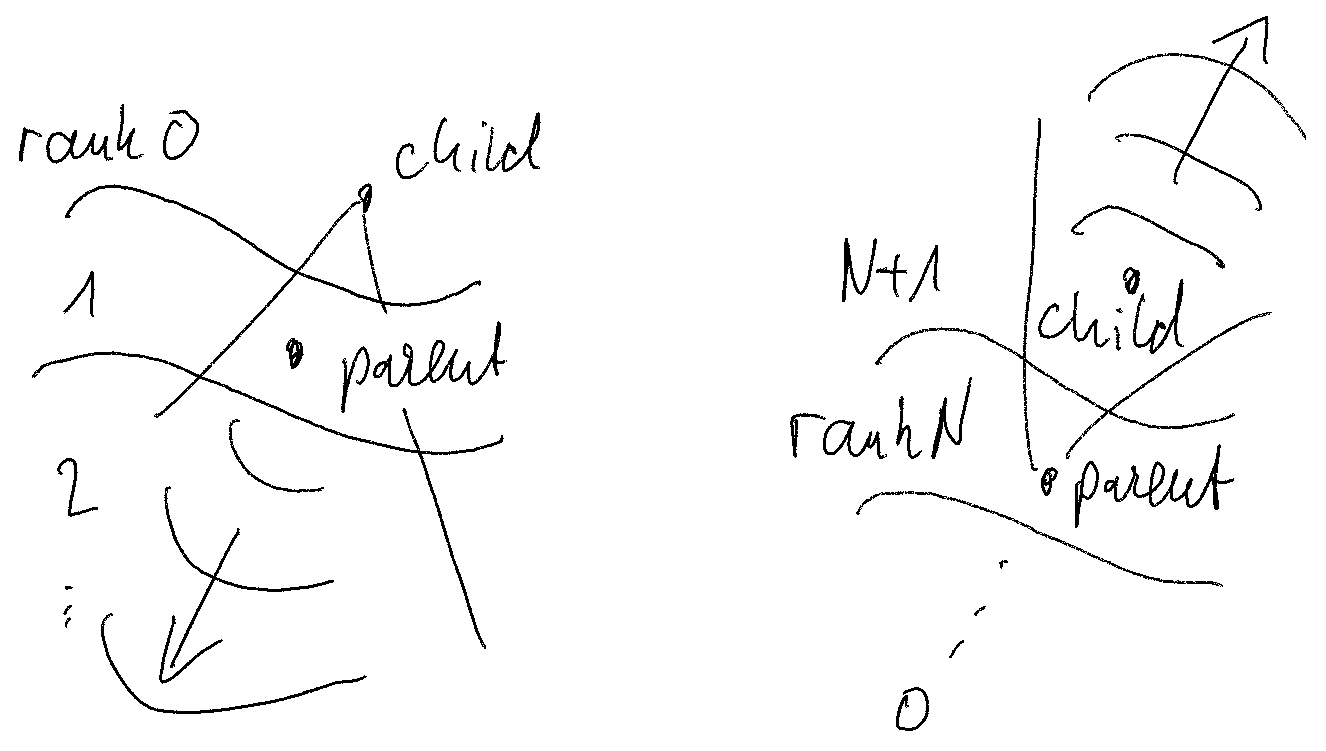 rank 0
child
1
parent
2
⋮
N+1
child
rank N
parent
0